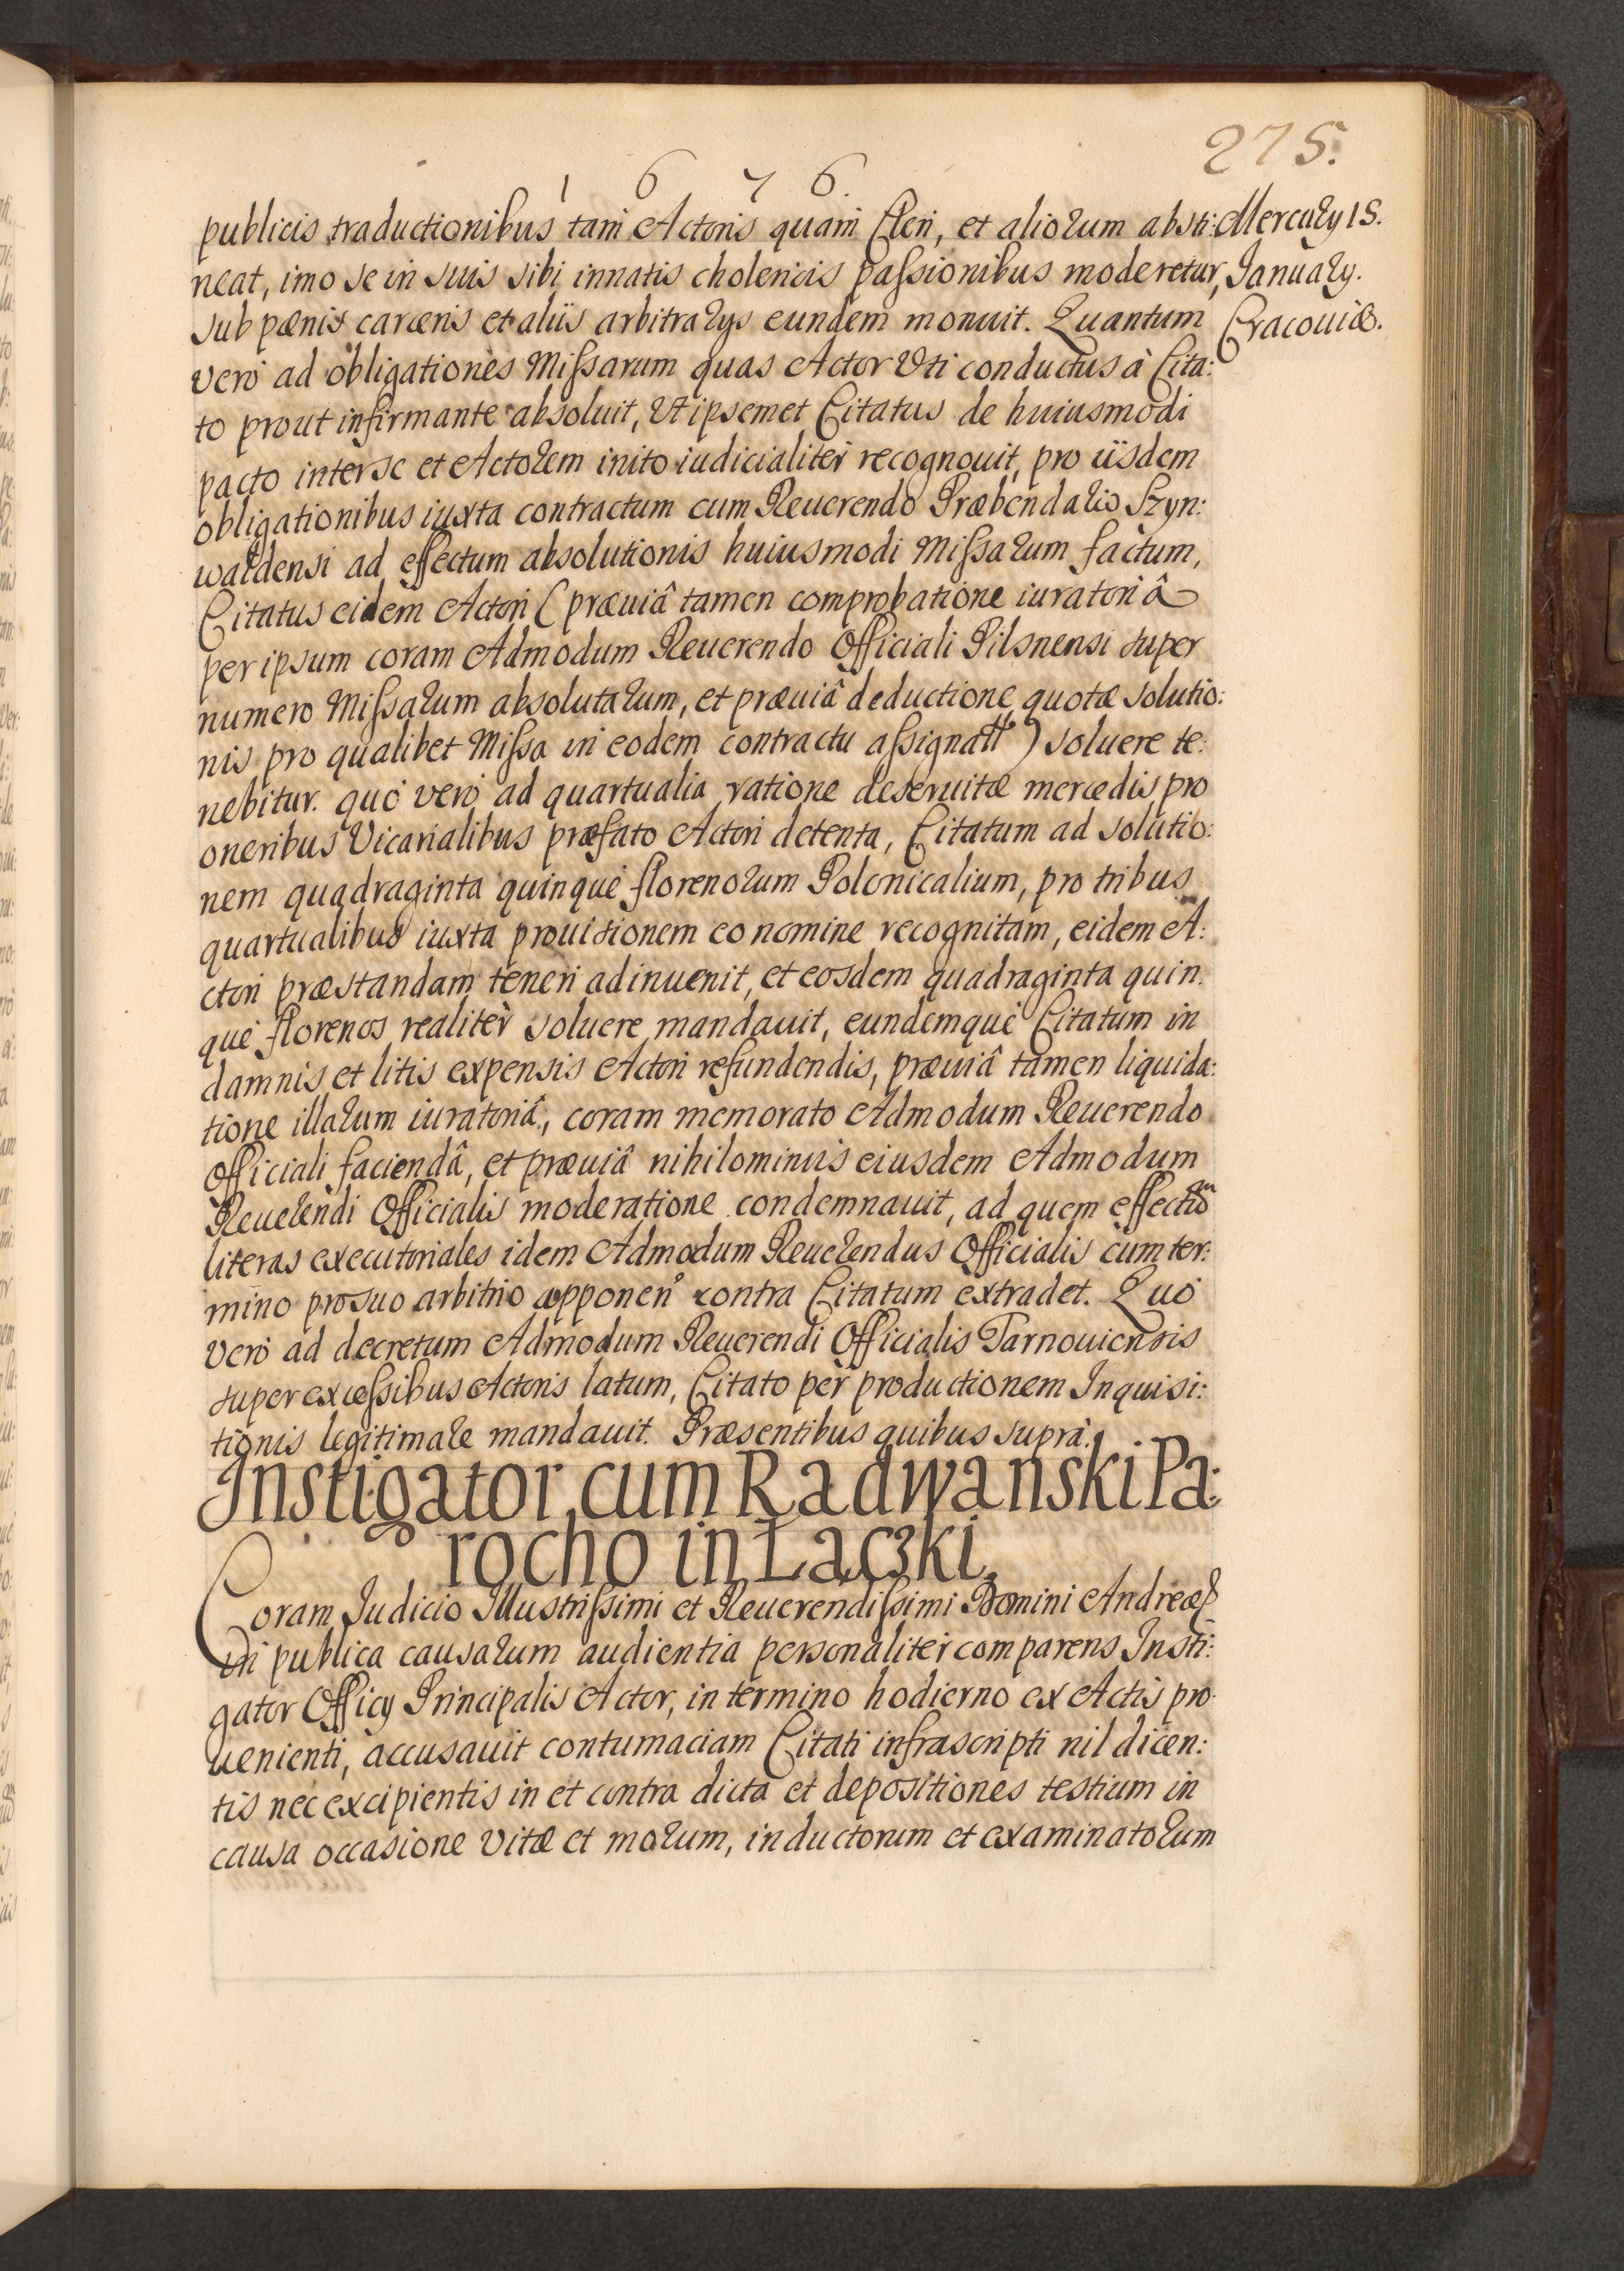 275.
1 6 7 6.
publicis traductionibus tam Actoris quam Cleri, et aliorum absti:
neat, imo se in suis sibi innatis cholericis passionibus moderetur,
sub pænis carceris et aliis arbitrarys eundem monuit. Quantum
verò ad obligationes Missarum quas Actor Vti conductus à Cita:
to prout infirmante absoluit, Vt ipsemet Citatus de huiusmodi
pacto inter se et Actorem inito iudicialiter recognouit, pro iisdem
obligationibus iuxta contractum cum Reuerendo Præbendario Szyn:
waldensi ad effectum absolutionis huiusmodi Missarum factum,
Citatus eidem Actori (præuiâ tamen comprobatione iuratoriâ
per ipsum coram Admodum Reuerendo Officiali Pilsnensi super
numero Missarum absolutarum, et præuiâ deductione quotæ solutio:
nis pro qualibet Missa in eodem contractu assignatæ) soluere te:
nebitur. quò verò ad quartualia ratione deseruitæ mercedis pro
oneribus Vicarialibus præfato Actori detenta, Citatum ad solutio:
nem quadraginta quinque florenorum Polonicalium, pro tribus
quartualibus iuxta prouisionem eo nomine recognitam, eidem A:
ctori præstandam teneri adinuenit, et eosdem quadraginta quin
què florenos realitèr soluere mandauit, eundemquè Citatum in
damnis et litis expensis Actori refundendis, præuiâ tamen liquida:
tione illarum iuratoriâ, coram memorato Admodum Reuerendo
Officiali faciendâ, et præuiâ nihilominus eiusdem Admodum
Reuerendi Officialis moderatione condemnauit, ad quem effectum
literas executoriales idem Admodum Reuerendus Officialis cum ter:
mino pro suo arbitrio apponen contra Citatum extradet. Quò
verò ad decretum Admodum Reuerendi Officialis Tarnouiensis
super excessibus Actoris latum, Citato per productionem Inquisi:
tionis legitimare mandauit. Præsentibus quibus suprà.
Mercury 15.
January.
Cracouiæ.
Instigator cum Radwanski Pa:
rocho in Łączki.
Coram Judicio Illustrissimi et Reuerendissimi Domini Andreæ
in publica causarum audientia personaliter comparens Insti:
gator Officy Principalis Actor, in termino hodierno ex Actis pro
uenienti, accusauit contumaciam Citati infrascripti nil dicen:
tis nec excipientis in et contra dicta et depositiones testium in
causa occasione vitæ et morum, inductorum et examinatorum